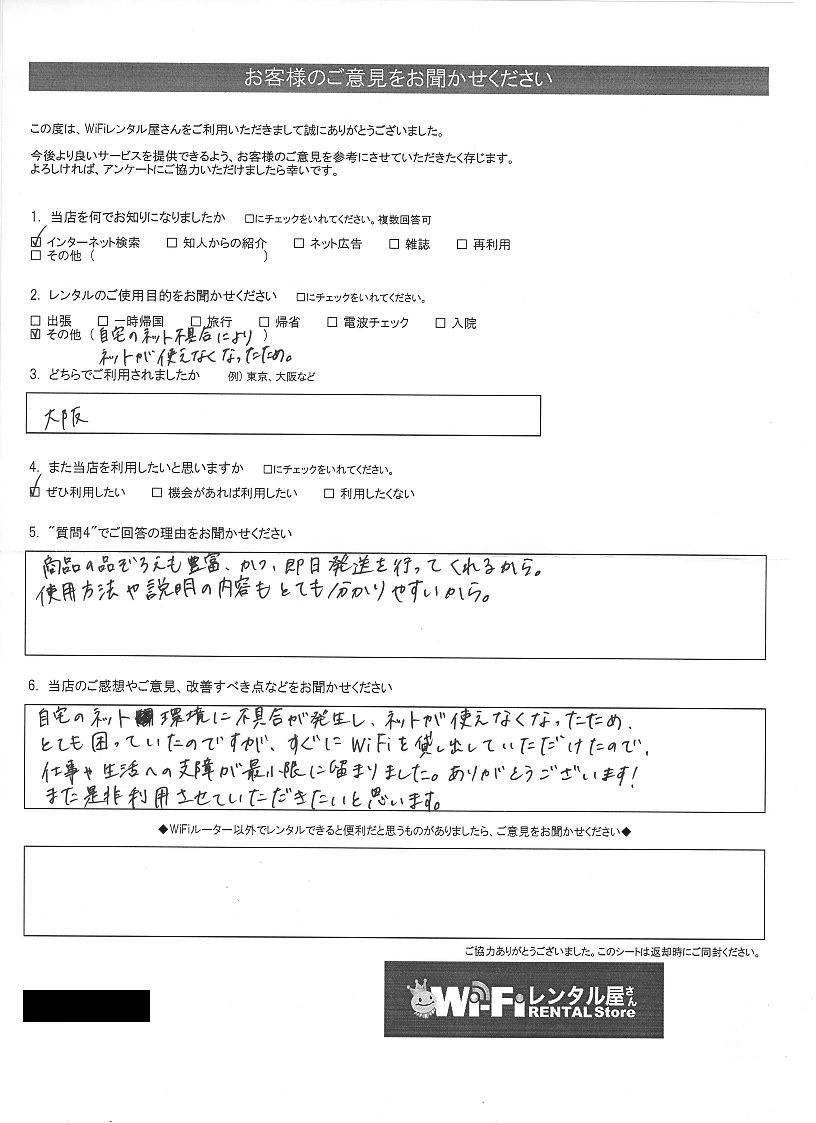 お客様のご意見をお聞かせください
この度は、WiFiレンタル屋さんをご利用いただきまして誠にありがとうございました。
今後より良いサービスを提供できるよう、お客様のご意見を参考にさせていただきたく存じます。
よろしければ、アンケートにご協力いただけましたら幸いです。
1. 当店を何でお知りになりましたか □にチェックをいれてください。複数回答可
☑ インターネット検索 □ 知人からの紹介 □ ネット広告 □ 雑誌 □ 再利用
□ その他 ( )
2. レンタルのご使用目的をお聞かせください □にチェックをいれてください。
□ 出張 □ 一時帰国 □ 旅行 □ 帰省 □ 電波チェック □ 入院
☑ その他 (自宅のネット不具合により )
ネットが使えなくなったため。
3. どちらでご利用されましたか 例) 東京、大阪など
大阪
4. また当店を利用したいと思いますか □にチェックをいれてください。
☑ ぜひ利用したい □ 機会があれば利用したい □ 利用したくない
5. "質問4"でご回答の理由をお聞かせください
商品の品ぞろえも豊富、かつ、即日発送を行ってくれるから。
使用方法や説明の内容もとても分かりやすいから。
6. 当店のご感想やご意見、改善すべき点などをお聞かせください
自宅のネット環境に不具合が発生し、ネットが使えなくなったため、
とても困っていたのですが、すぐにWiFiを貸し出していただけたので、
仕事や生活への支障が最小限に留まりました。ありがとうございます!
また是非利用させていただきたいと思います。
◆WiFiルーター以外でレンタルできると便利だと思うものがありましたら、ご意見をお聞かせください◆
ご協力ありがとうございました。このシートは返却時にご同封ください。
Wi-Fiレンタル屋さん
RENTAL Store